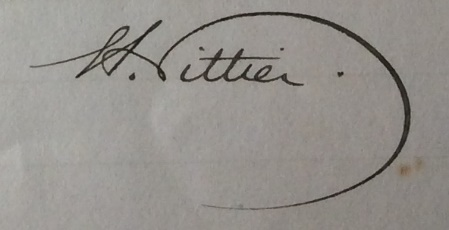 H. Pittier.